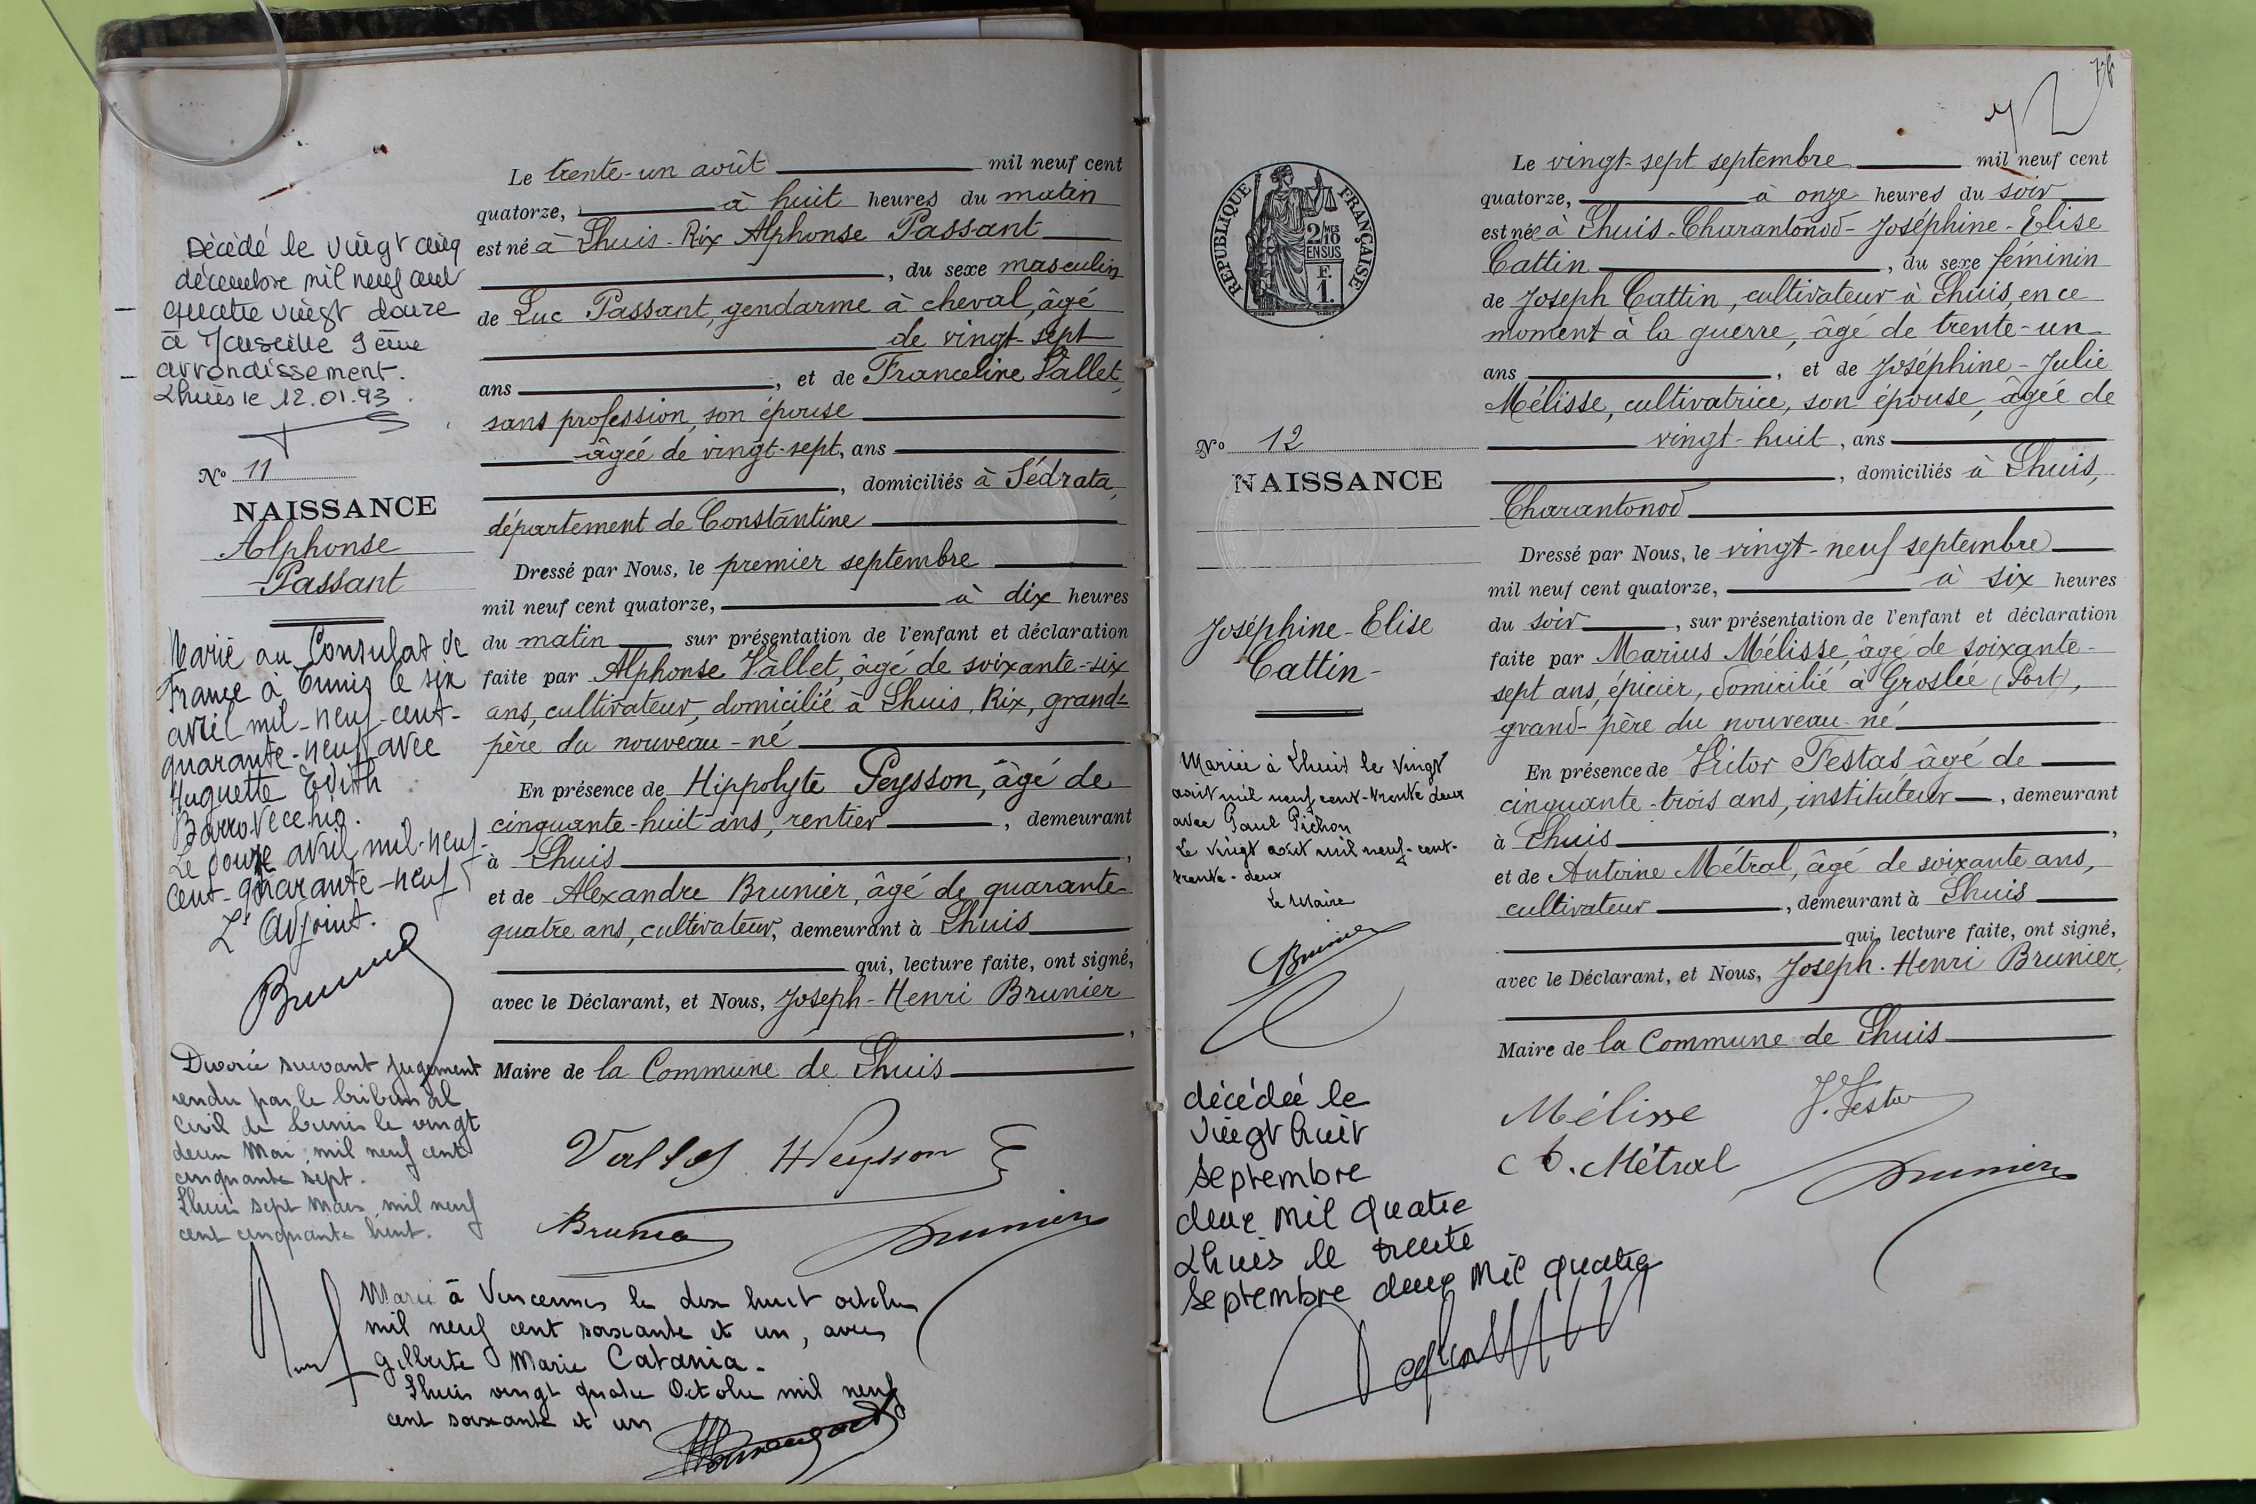 Le trente-un août mil neuf cent
quatorze, à huit heures du matin
est né à Lhuis-Rix Alphonse Passant
, du sexe masculin
de Luc Passant, gendarme à cheval, âgé
de vingt-sept
ans , et de Franceline Vallet,
sans profession, son épouse
âgée de vingt-sept, ans
, domiciliés à Sédrata,
département de Constantine
Dressé par Nous, le premier septembre
mil neuf cent quatorze, à dix heures
du matin sur présentation de l'enfant et déclaration
faite par Alphonse Vallet, âgé de soixante-six
ans, cultivateur, domicilié à Lhuis, Rix, grand-
père du nouveau-né
En présence de Hippolyte Peysson, âgé de
cinquante-huit ans, rentier , demeurant
à Lhuis ,
et de Alexandre Brunier, âgé de quarante-
quatre ans, cultivateur, demeurant à Lhuis
qui, lecture faite, ont signé,
avec le Déclarant, et Nous, Joseph-Henri Brunier
,
Maire de la Commune de Lhuis
Vallet HPeysson
Brunier Brunier
Décédé le vingt cinq
décembre mil neuf cent
quatre vingt douze
à Marseille 9ème
arrondissement.
Lhuis le 12.01.93.
No 11
NAISSANCE
Alphonse
Passant
Marié au Consulat de
France à Tunis le six
avril mil-neuf-cent-
quarante-neuf avec
Huguette Edith
Barrovecchio.
Le douze avril mil-neuf-
cent-quarante-neuf
L'Adjoint.
Brunier
Divorcé suivant jugement
rendu par le tribunal
Civil de Tunis le vingt
deux Mai mil neuf cent
cinquante sept.
Lhuis sept Mars mil neuf
cent cinquante huit.
Marié à Vincennes le dix huit octobre
mil neuf cent soixante et un, avec
Gilberte Marie Catania.
Lhuis vingt quatre Octobre mil neuf
cent soixante et un
RÉPUBLIQUE FRANÇAISE
2/10MES
EN SUS
F.
1.
Le vingt-sept septembre mil neuf cent
quatorze, à onze heures du soir
est née à Lhuis-Charantonod-Joséphine-Elise
Cattin , du sexe féminin
de Joseph Cattin, cultivateur à Lhuis, en ce
moment à la guerre, âgé de trente-un
ans , et de Joséphine-Julie
Mélisse, cultivatrice, son épouse, âgée de
vingt-huit, ans
, domiciliés à Lhuis,
Charantonod
Dressé par Nous, le vingt-neuf septembre
mil neuf cent quatorze, à six heures
du soir , sur présentation de l'enfant et déclaration
faite par Marius Mélisse, âgé de soixante-
sept ans, épicier, domicilié à Groslée (Port),
grand-père du nouveau-né
En présence de Victor Festas âgé de
cinquante-trois ans, instituteur , demeurant
à Lhuis ,
et de Antoine Métral, âgé de soixante ans,
cultivateur , demeurant à Lhuis
qui, lecture faite, ont signé,
avec le Déclarant, et Nous, Joseph-Henri Brunier,
Maire de la Commune de Lhuis
Mélisse
A. Métral
Brunier
No 12
NAISSANCE
Joséphine-Elise
Cattin-
Mariée à Lhuis le vingt
août mil neuf cent-trente deux
avec Paul Pichon
Le vingt août mil neuf-cent-
trente-deux
Le Maire
Brunier
décédée le
vingt huit
septembre
deux mil quatre
Lhuis le trente
septembre deux mil quatre